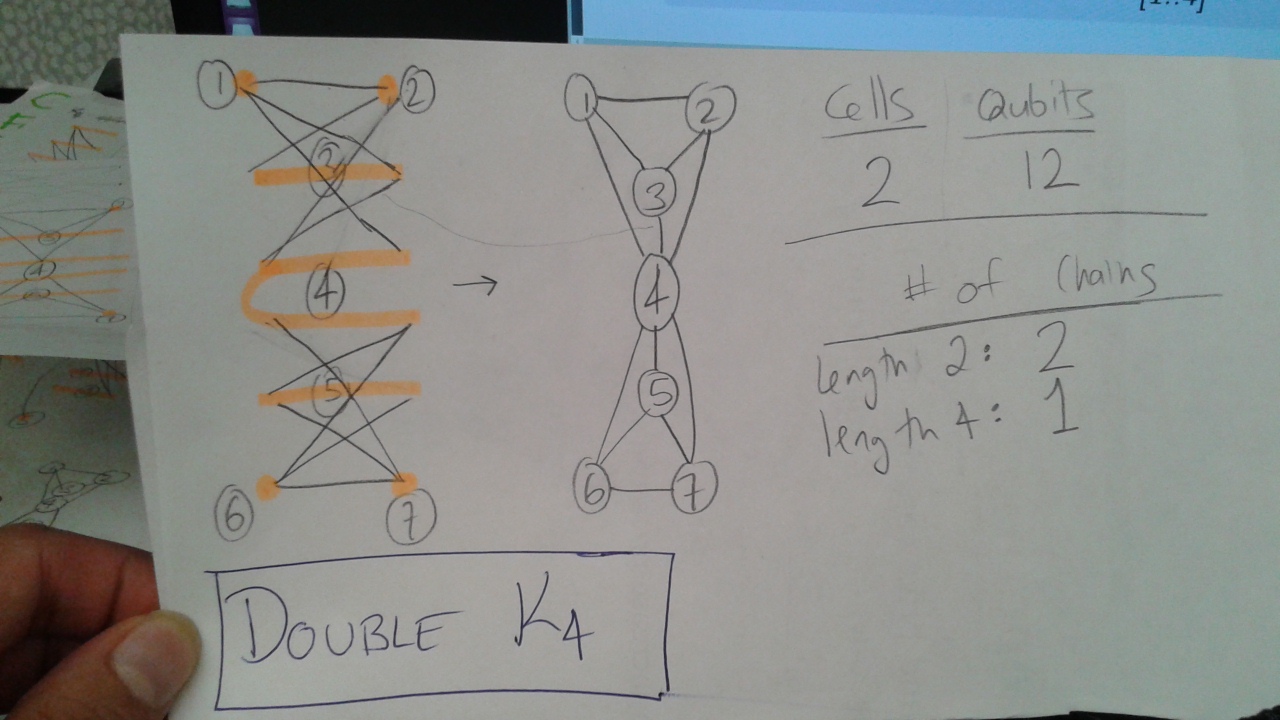 1 2
3
4
5
6 7
1 2
3
4
5
6 7
Cells Qubits
2 12
# of Chains
length 2: 2
length 4: 1
DOUBLE K4